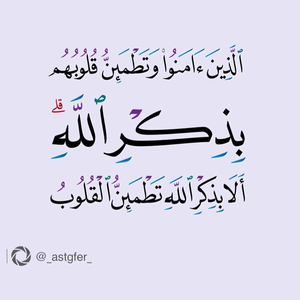 ٱلَّذِينَ ءَامَنُوا۟ وَتَطْمَئِنُّ قُلُوبُهُم
بِذِكْرِ ٱللَّهِ ۗ
أَلَا بِذِكْرِ ٱللَّهِ تَطْمَئِنُّ ٱلْقُلُوبُ
@_astgfer_